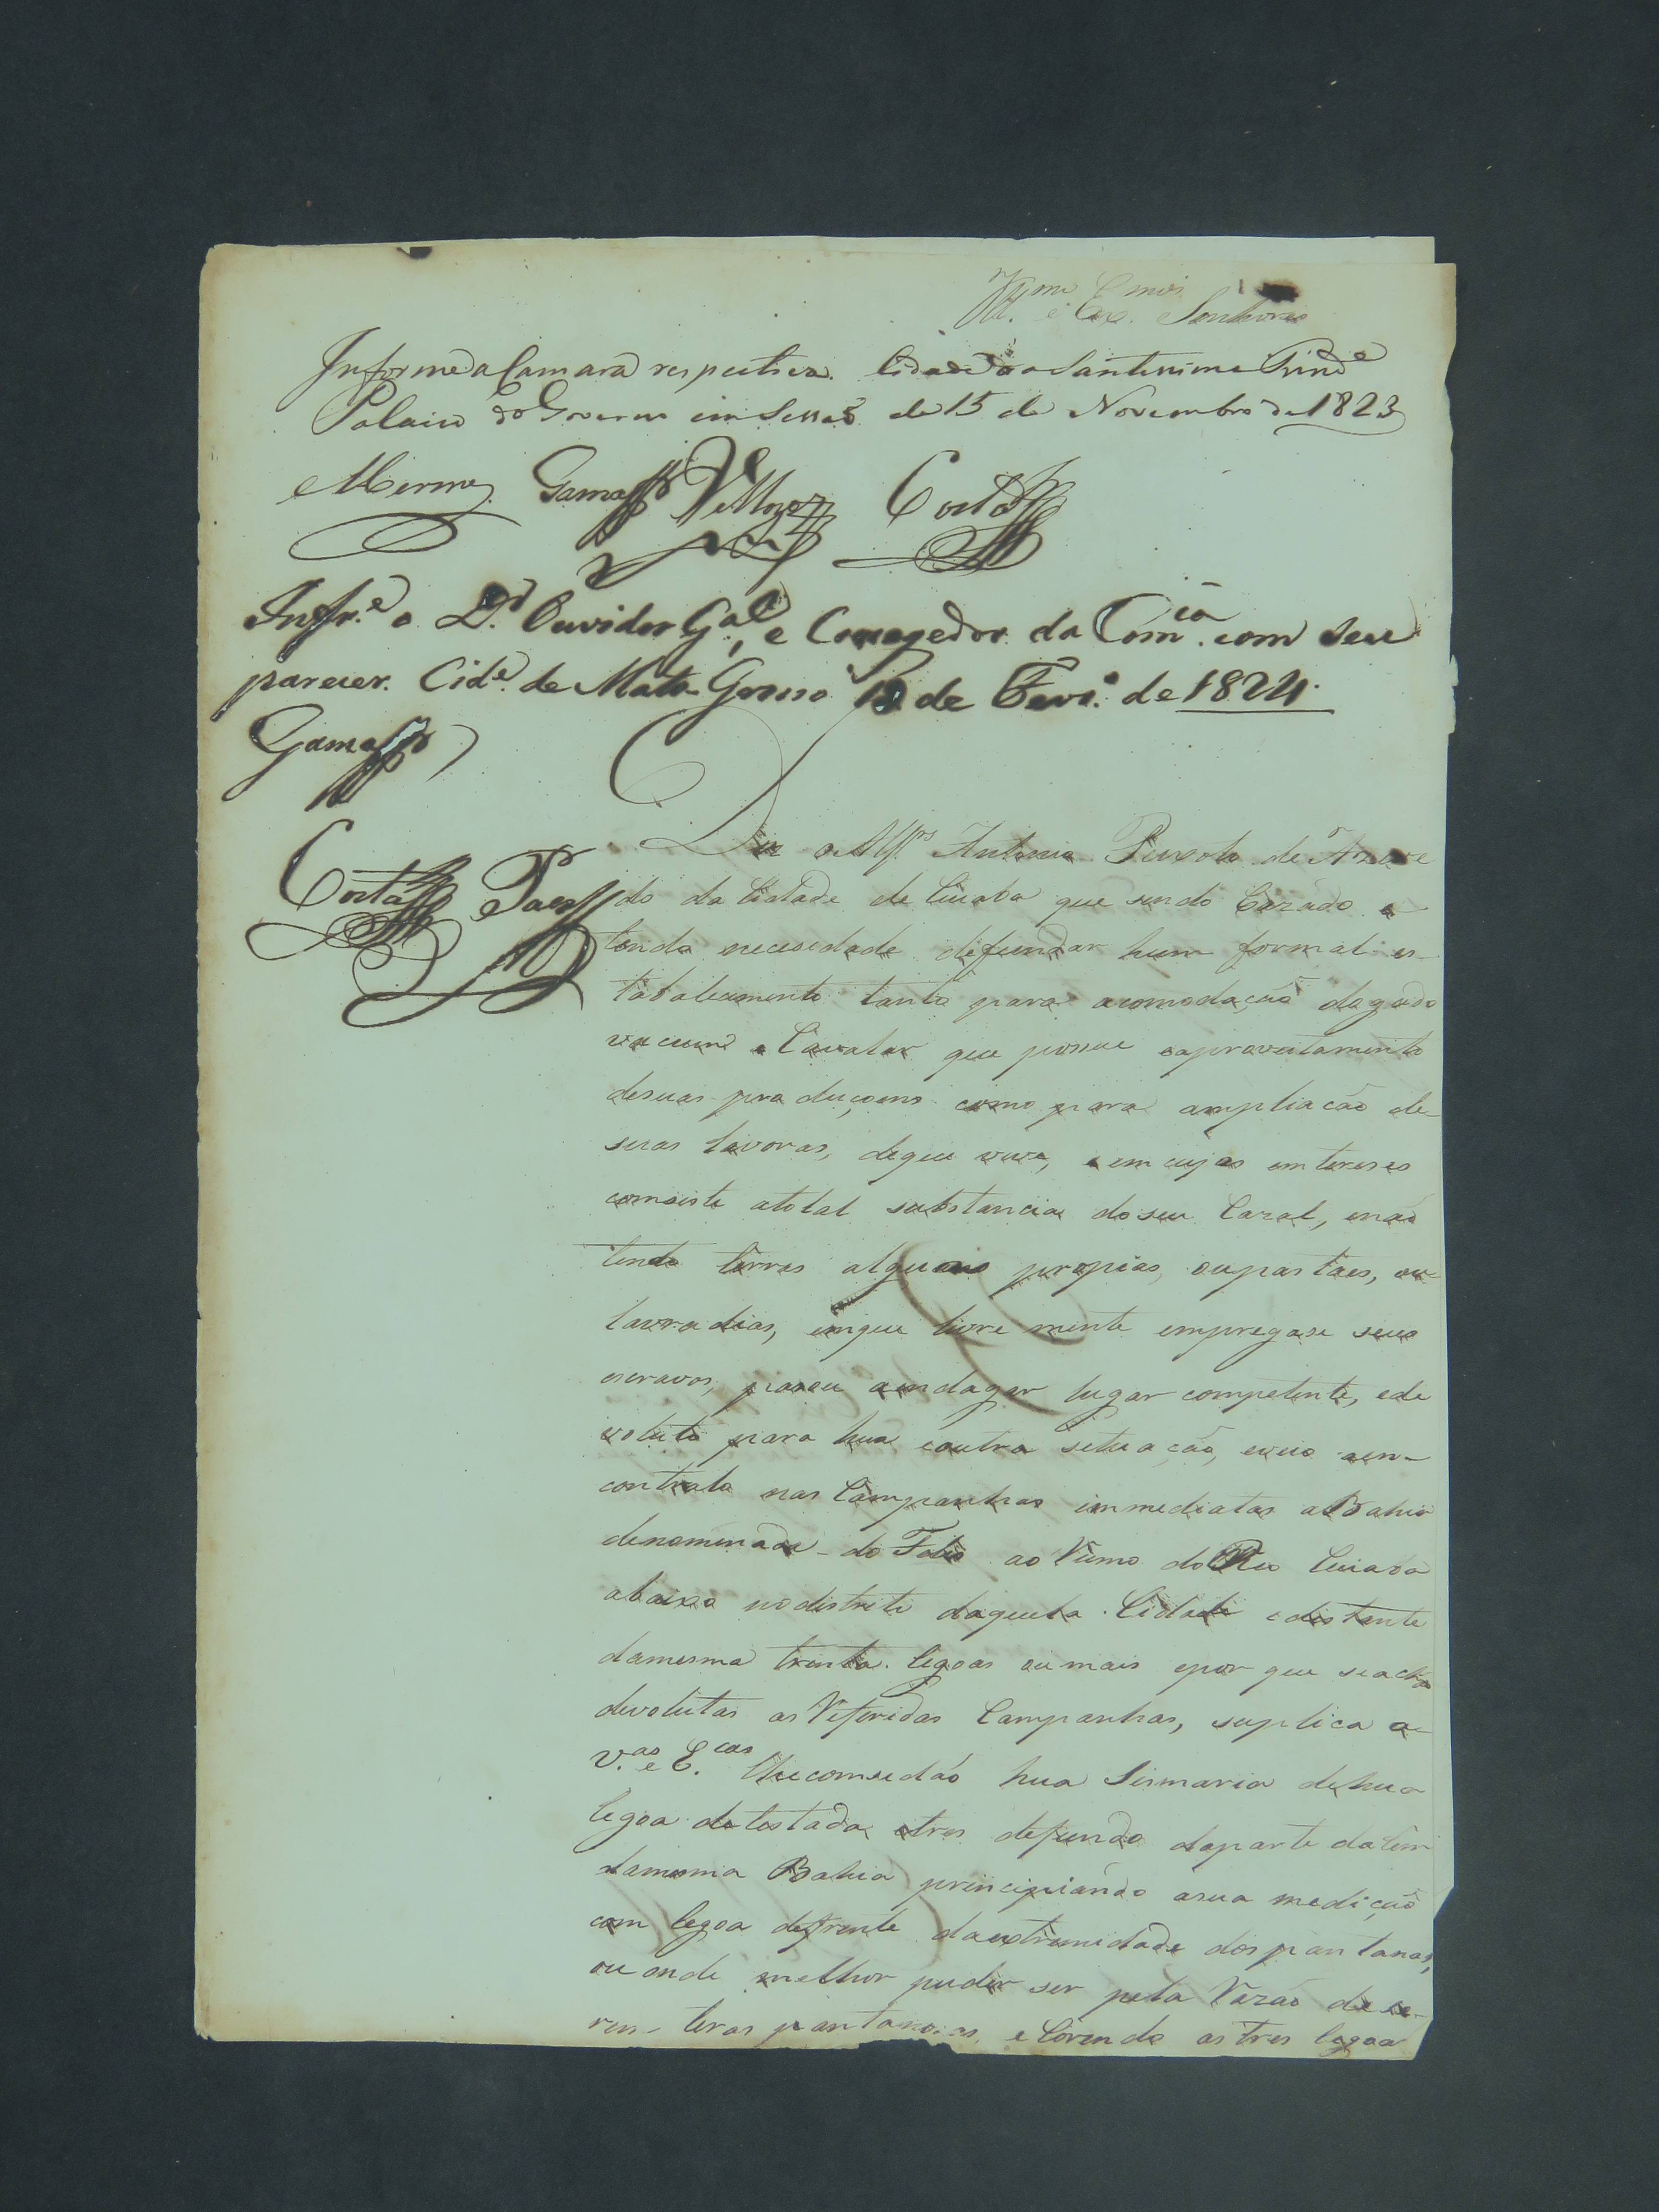 Ill.mos e Ex.mos Senhores
Informe a Camara respectiva. Cidade da Santissima Trind.e
Palacio do Governo em Sessaõ de 15 de Novembro de 1823
Gama Vellozo Costa
Infr.e o D.r Ouvidor G.al, e Corregedor da Com.ca com seu
parecer. Cid.e de Mato Grosso de Fevr.o de 1824.
Gama
Costa Paes
Diz o Alf.rs Antonio Peixoto de Azeve
do da Cidade de Cuiaba que sendo Cazado e
tendo necesidade defundar hum formal es-
tabalecimento tanto para acomodação dogado
vacum e Cavalar que posue eaproveitamento
desuas produçoens como para ampliacão de
suas lavoras, deque vive, eem cujos intereses
comsiste atotal substancia doseu Cazal, enaõ
tendo terras algumas propias, oupastaes, ou
lavradias, emque livre mente empregase seus
escravos, pasou aindagar lugar competente, ede
voluto para hua eoutra setuacão, eveio aen-
contralo nas Campanhas immediatas aBahia
denominada - do ao Rumo do Rio Cuiaba
abaixo nodistrito daquela Cidade edistante
damesma trinta legoas oumais epor que seachaõ
devolutas as Referidas Campanhas, suplica a
V.as e E.cas lhecomsedaõ hua Sismaria dehua
legoa detestada etres defundo daparte
damesma Bahia principiando asua medição
com legoa defrente daextremidade dos pantanaes,
ou onde melhor puder ser pela Razaõ de se-
rem terras pantanosas, eCorendo as tres legoas